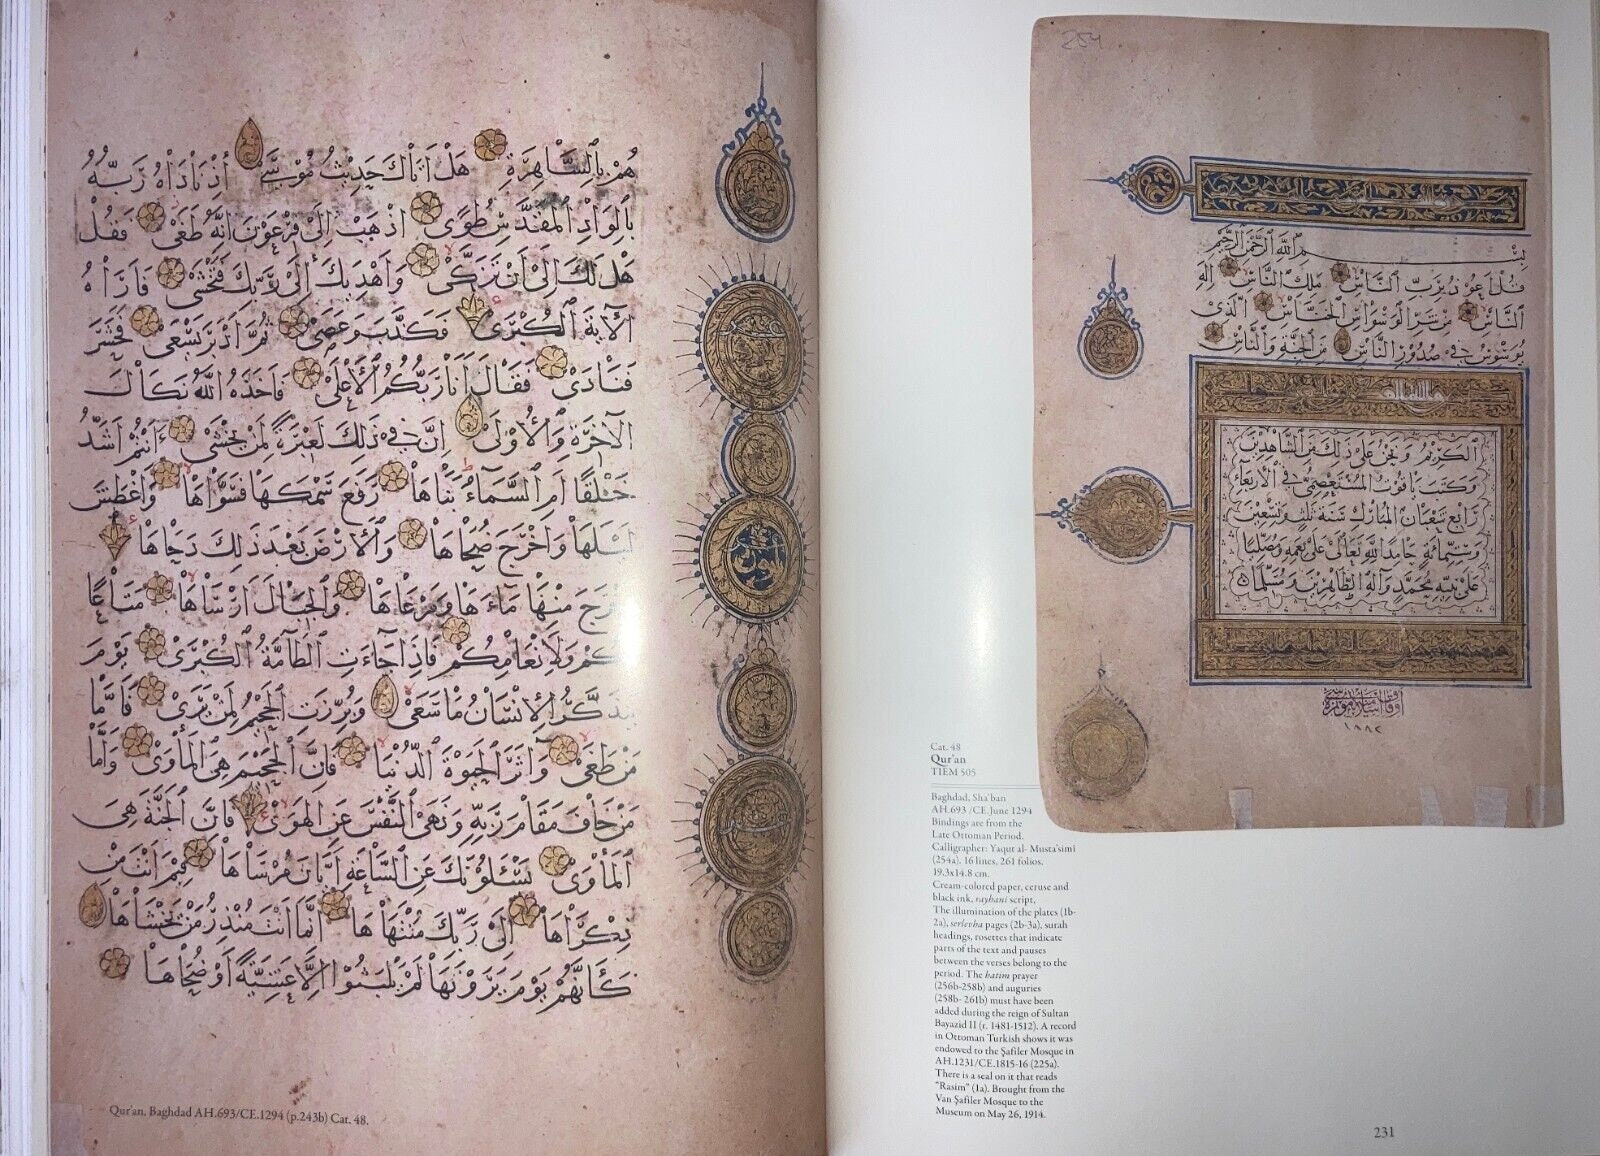 هُمْ بِالسَّاهِرَةِ هَلْ اَتَاكَ حَدِيثُ مُوسٰى اِذْ نَادَاهُ رَبُّهُ
بِالْوَادِ الْمُقَدَّسِ طُوًى اِذْهَبْ اِلٰى فِرْعَوْنَ اِنَّهُ طَغٰى فَقُلْ
هَلْ لَكَ اِلٰى اَنْ تَزَكّٰى وَاَهْدِيَكَ اِلٰى رَبِّكَ فَتَخْشٰى فَاَرَاهُ
الْاٰيَةَ الْكُبْرٰى فَكَذَّبَ وَعَصٰى ثُمَّ اَدْبَرَ يَسْعٰى فَحَشَرَ
فَنَادٰى فَقَالَ اَنَا رَبُّكُمُ الْاَعْلٰى فَاَخَذَهُ اللّٰهُ نَكَالَ
الْاٰخِرَةِ وَالْاُولٰى اِنَّ فِي ذٰلِكَ لَعِبْرَةً لِمَنْ يَخْشٰى ءَاَنْتُمْ اَشَدُّ
خَلْقًا اَمِ السَّمَاءُ بَنَاهَا رَفَعَ سَمْكَهَا فَسَوَّاهَا وَاَغْطَشَ
لَيْلَهَا وَاَخْرَجَ ضُحَاهَا وَالْاَرْضَ بَعْدَ ذٰلِكَ دَحَاهَا
اَخْرَجَ مِنْهَا مَاءَهَا وَمَرْعَاهَا وَالْجِبَالَ اَرْسَاهَا مَتَاعًا
لَكُمْ وَلِاَنْعَامِكُمْ فَاِذَا جَاءَتِ الطَّامَّةُ الْكُبْرٰى يَوْمَ
يَتَذَكَّرُ الْاِنْسَانُ مَا سَعٰى وَبُرِّزَتِ الْجَحِيمُ لِمَنْ يَرٰى فَاَمَّا
مَنْ طَغٰى وَاٰثَرَ الْحَيٰوةَ الدُّنْيَا فَاِنَّ الْجَحِيمَ هِيَ الْمَأْوٰى وَاَمَّا
مَنْ خَافَ مَقَامَ رَبِّهِ وَنَهَى النَّفْسَ عَنِ الْهَوٰى فَاِنَّ الْجَنَّةَ هِيَ
الْمَأْوٰى يَسْئَلُونَكَ عَنِ السَّاعَةِ اَيَّانَ مُرْسَاهَا فِيمَ اَنْتَ مِنْ
ذِكْرَاهَا اِلٰى رَبِّكَ مُنْتَهَاهَا اِنَّمَا اَنْتَ مُنْذِرُ مَنْ يَخْشَاهَا
كَاَنَّهُمْ يَوْمَ يَرَوْنَهَا لَمْ يَلْبَثُوا اِلَّا عَشِيَّةً اَوْ ضُحَاهَا
Qur'an, Baghdad AH.693/CE.1294 (p.243b) Cat. 48.
254
بِسْمِ اللّٰهِ الرَّحْمٰنِ الرَّحِيمِ
قُلْ اَعُوذُ بِرَبِّ النَّاسِ مَلِكِ النَّاسِ اِلٰهِ
النَّاسِ مِنْ شَرِّ الْوَسْوَاسِ الْخَنَّاسِ الَّذِي
يُوَسْوِسُ فِي صُدُورِ النَّاسِ مِنَ الْجِنَّةِ وَالنَّاسِ
الكريم ونحن على ذلك من الشاهدين
وكتب ياقوت المستعصمي في الأربعاء
رابع شعبان المبارك سنة ثلث وتسعين
وستمائة حامدا لله تعالى على نعمه ومصليا
على نبيه محمد وآله الطاهرين ومسلما
Cat. 48
Qur'an
TIEM 505
Baghdad, Sha'ban
AH.693 /CE.June 1294
Bindings are from the
Late Ottoman Period.
Calligrapher: Yaqut al- Musta'simi
(254a). 16 lines, 261 folios.
19.3x14.8 cm.
Cream-colored paper, ceruse and
black ink, rayhani script.
The illumination of the plates (1b-
2a), serlevha pages (2b-3a), surah
headings, rosettes that indicate
parts of the text and pauses
between the verses belong to the
period. The hatim prayer
(256b-258b) and auguries
(258b- 261b) must have been
added during the reign of Sultan
Bayazid II (r. 1481-1512). A record
in Ottoman Turkish shows it was
endowed to the Şafiler Mosque in
AH.1231/CE.1815-16 (225a).
There is a seal on it that reads
"Rasim" (1a). Brought from the
Van Şafiler Mosque to the
Museum on May 26, 1914.
231